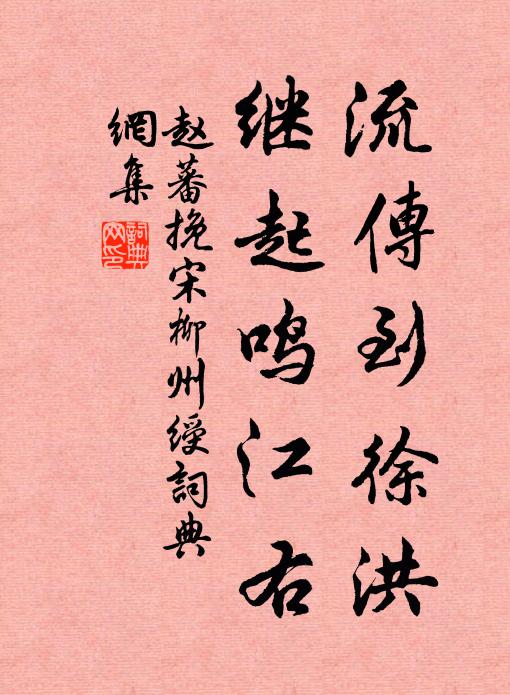 流傳到徐洪
继起鸣江右
赵蕃挽宋柳州绶詞典
網集
詞典網印